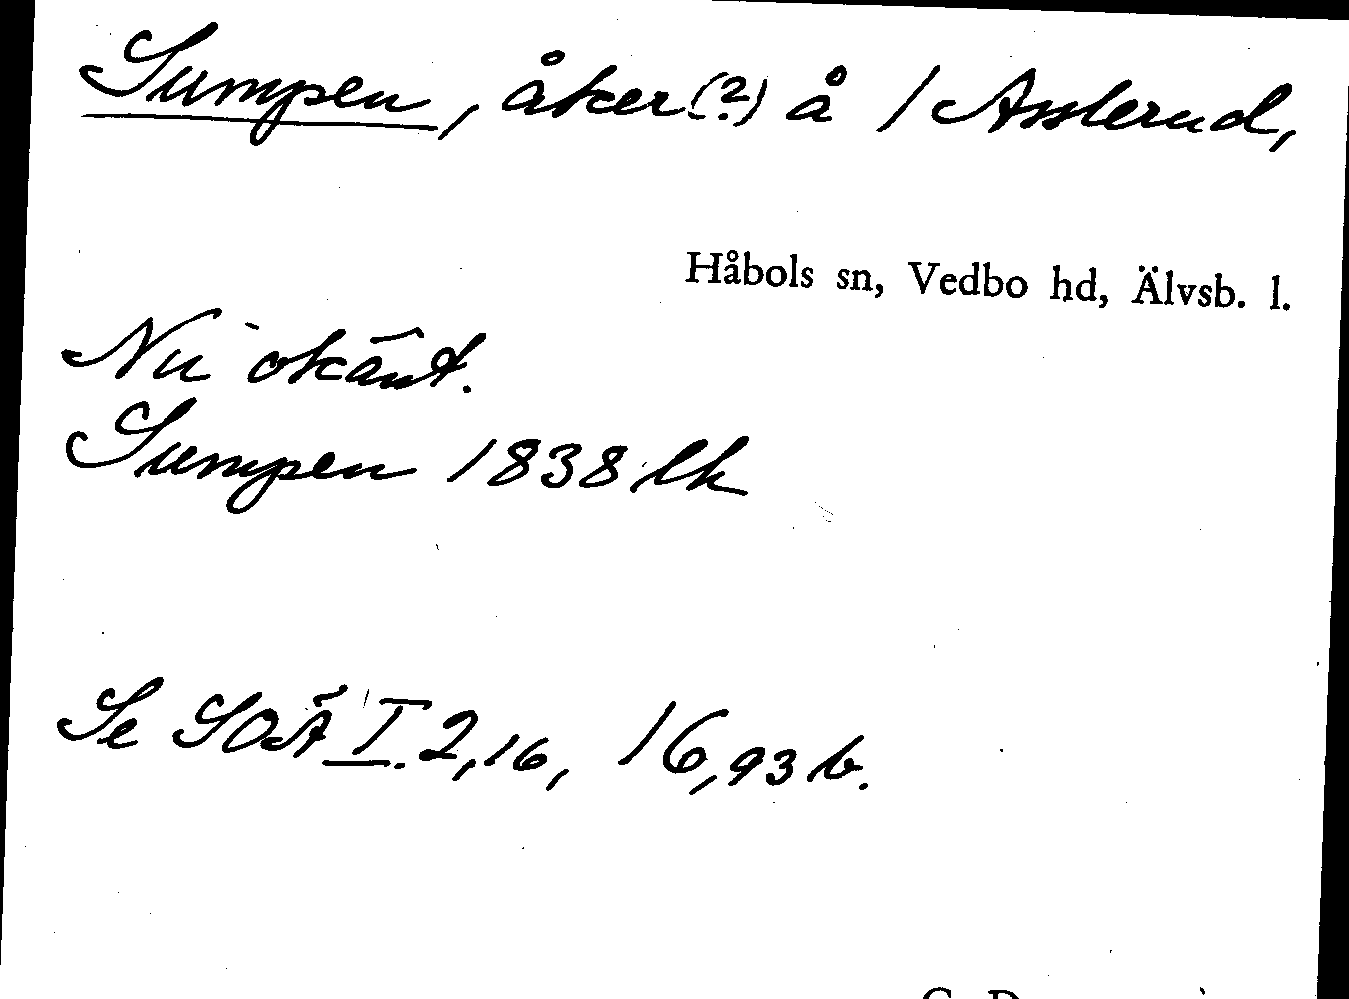 Sumpen, åker(?) å 1 Asslerud,
Håbols sn, Vedbo hd, Älvsb. l.
Nu okänt.
Sumpen 1838 lk
Se SOÄ I. 2,16, 16,93 b.